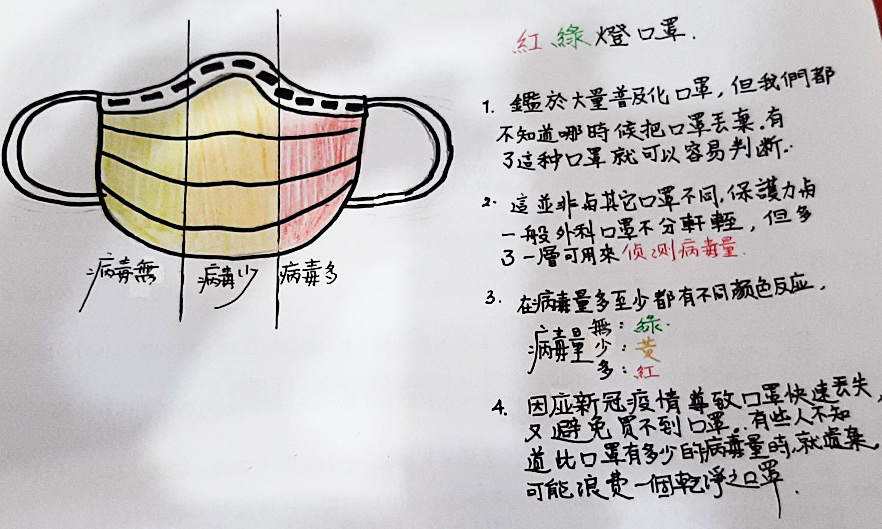 紅綠燈口罩.
病毒無
病毒少
病毒多
1. 鑑於大量普及化口罩，但我們都
不知道哪時候把口罩丟棄.有
了這种口罩就可以容易判断.
2. 這並非与其它口罩不同,保護力与
一般外科口罩不分軒輊，但多
了一層可用來侦测病毒量.
3. 在病毒量多至少都有不同颜色反应.
病毒量 無：綠.
少：黄
多：紅
4. 因应新冠疫情導致口罩快速丟失,
又避免買不到口罩.有些人不知
道此口罩有多少的病毒量時,就遺棄.
可能浪费一個乾淨之口罩.